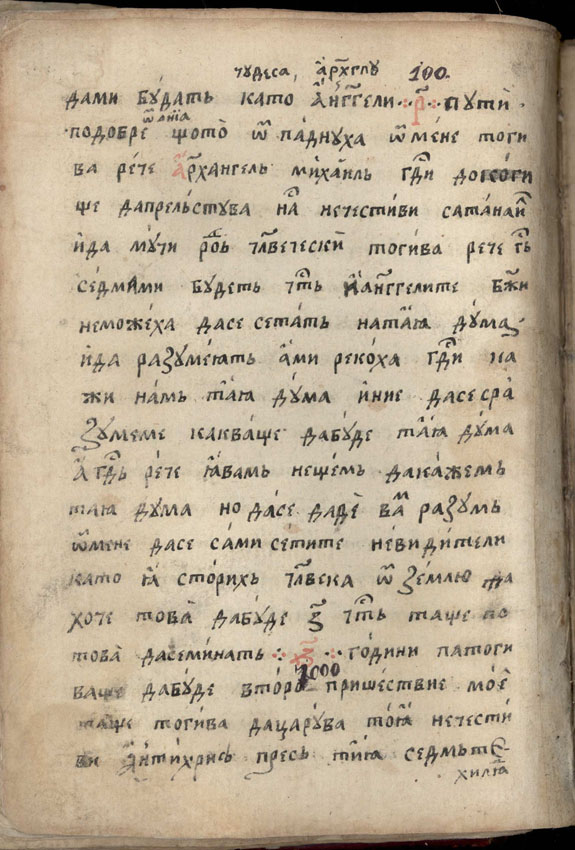 чудеса, а҆рⷯгглꙋ 100
дами бꙋ́датъ като а҆́нг҃гели ·:· р҃ · пꙋтѝ
ѿ анїа
подобре щото̀ ѿ паднꙋха ѿ мене тоги
ва ре́че а҆рⷯхангелъ михаи́лъ гдⷭ҇и доко́ги
ще дапрельстꙋва наⷭ҇ нечестиви сатанаи҆лⷧ
и҆да мꙋ́чи роⷣвъ чл҃веческѝ тогива рече гдⷭ҇ь
седмими бꙋдетъ чтⷭ҇ъ и҆ а҆нг҃гелите бжⷤи
неможе́ха дасе сетатъ натаꙗ҆ дꙋма
и҆да разꙋмеютъ а҆ми рекоха гдⷭ҇и ка
жи намъ таꙗ҆ дꙋма и҆ ние дасесра
зꙋмеме какваще дабꙋде таꙗ҆ дꙋма
а҆ гдⷭ҇ь рече ꙗ҆ вамъ нещемъ дакажемъ
таꙗ дꙋма но дасе дадѐ ваⷨ разꙋмъ
ѿмене дасе сами сетите невидители
като ꙗ҆ сторихъ чл҃века ѿ землю та
хоче това̀ дабꙋде з҃ чтⷭ҇ъ таще по
това̀ дасеминатъ ·:· ҂з҃ ·:· години патоги
7000
ваще дабꙋде второ пришествие моѐ
таще тогива дацарꙋва тоꙗ҆ нечести
ви а҆нтихрисъ пресъ тиꙗ҆ седмъте
хилꙗⷣ